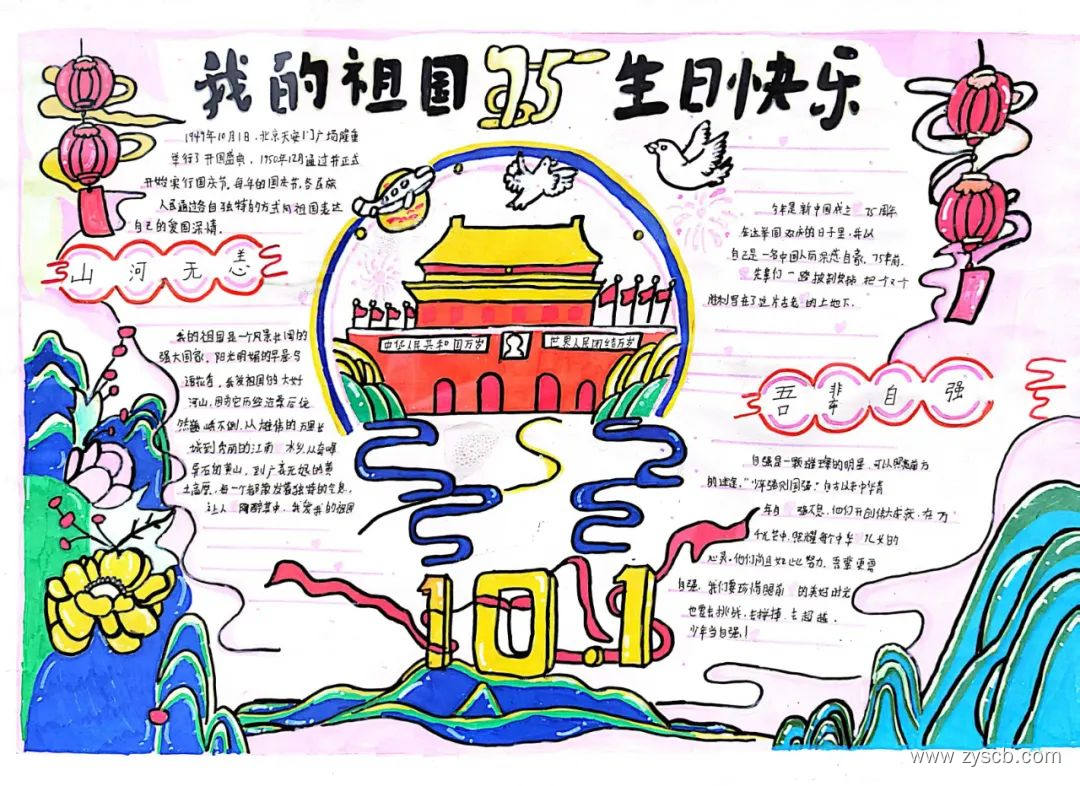 我的祖国75生日快乐
1949年10月1日,北京天安门广场隆重
举行了开国盛典,1950年12月通过并正式
开始实行国庆节,每年的国庆节,各民族
人民通过各自独特的方式向祖国表达
自己的爱国深情。
山河无恙
我的祖国是一个风景壮阔的
强大国家,阳光明媚的早晨与
海花香,我爱祖国的大好
河山,因为它历经沧桑后依
然巍峨不倒,从雄伟的万里长
城到秀丽的江南水乡,从奇峰
异石的黄山,到广袤无垠的黄
土高原,每一个都散发着独特的气息,
让人陶醉其中,我爱我的祖国
中华人民共和国万岁
世界人民团结万岁
今年是新中国成立75周年
在这举国欢庆的日子里,我以
自己是一名中国人而深感自豪,75年前,
先辈们一路披荆斩棘把一个又一个
胜利写在了这片古老的土地下。
吾辈自强
自强是一颗璀璨的明星,可以照亮前方
的迷途,"少年强则国强",自古以来中华青
年自强不息,他们开创伟大成就,在万
千光芒中,照耀每个中华儿女的
心灵。他们尚且如此努力,吾辈更需
自强,我们要珍惜眼前的美好时光
也要去挑战,去拼搏,去超越,
少年当自强!
10.1
www.zyscb.com